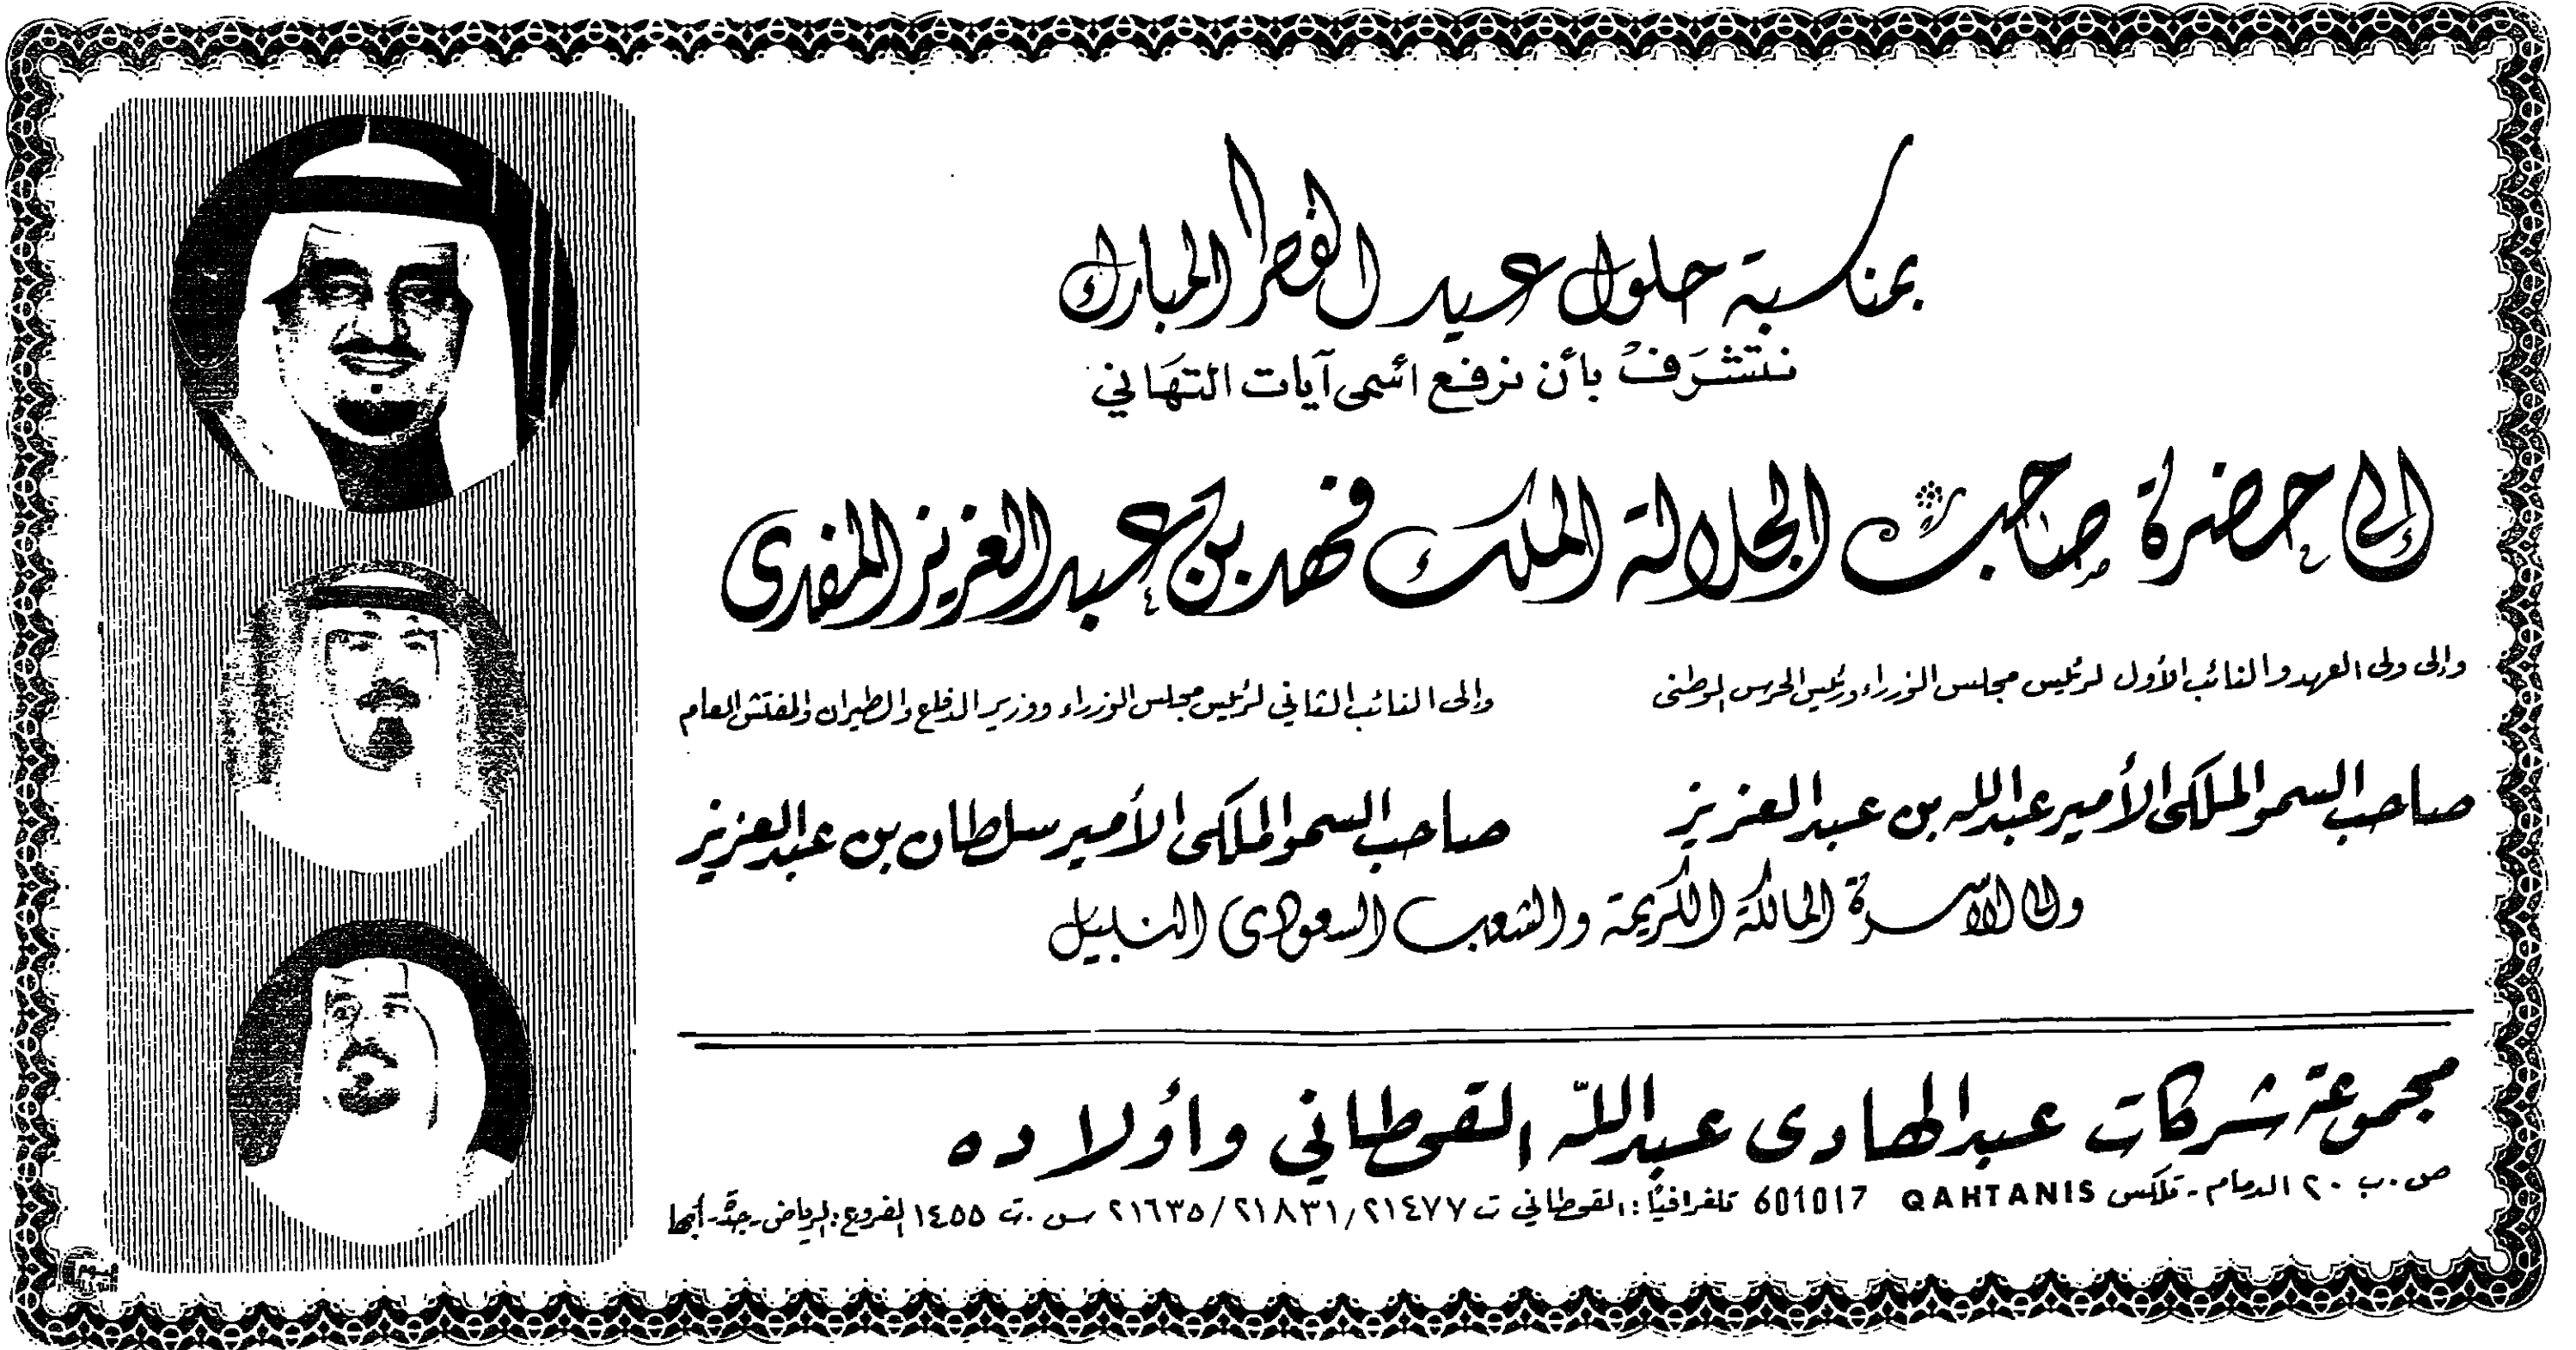 بمناسبة حلول عيد الفطر المبارك
نتشرف بأن نرفع اسمى آيات التهاني
إلى حضرة صاحب الجلالة الملك فهد بن عبد العزيز المفدى
وإلى ولى العهد والنائب الأول لرئيس مجلس الوزراء ورئيس الحرس الوطنى
صاحب السمو الملكى الأمير عبدالله بن عبد العزيز
وإلى النائب الثاني لرئيس مجلس الوزراء ووزير الدفاع والطيران والمفتش العام
صاحب السمو الملكى الأمير سلطان بن عبد العزيز
والى الاسرة المالكة الكريمة والشعب السعودى النبيل
مجموعة شركات عبد الهادى عبد الله القحطاني وأولاده
ص.ب ٢٠ الدمام - تلكس QAHTANIS 601017 تلغرافيًا: القحطاني ت ٢١٤٧٧/٢١٨٣١/٢١٦٣٥ س.ت ١٤٥٥ الفروع: الرياض - جدة - أبها